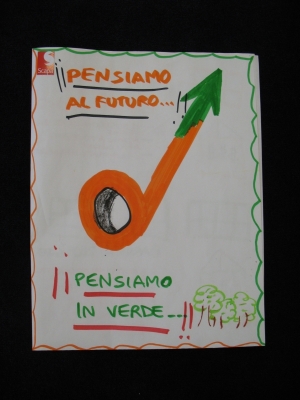 ¡¡PENSIAMO
AL FUTURO...!!
¡¡PENSIAMO
IN VERDE...!!